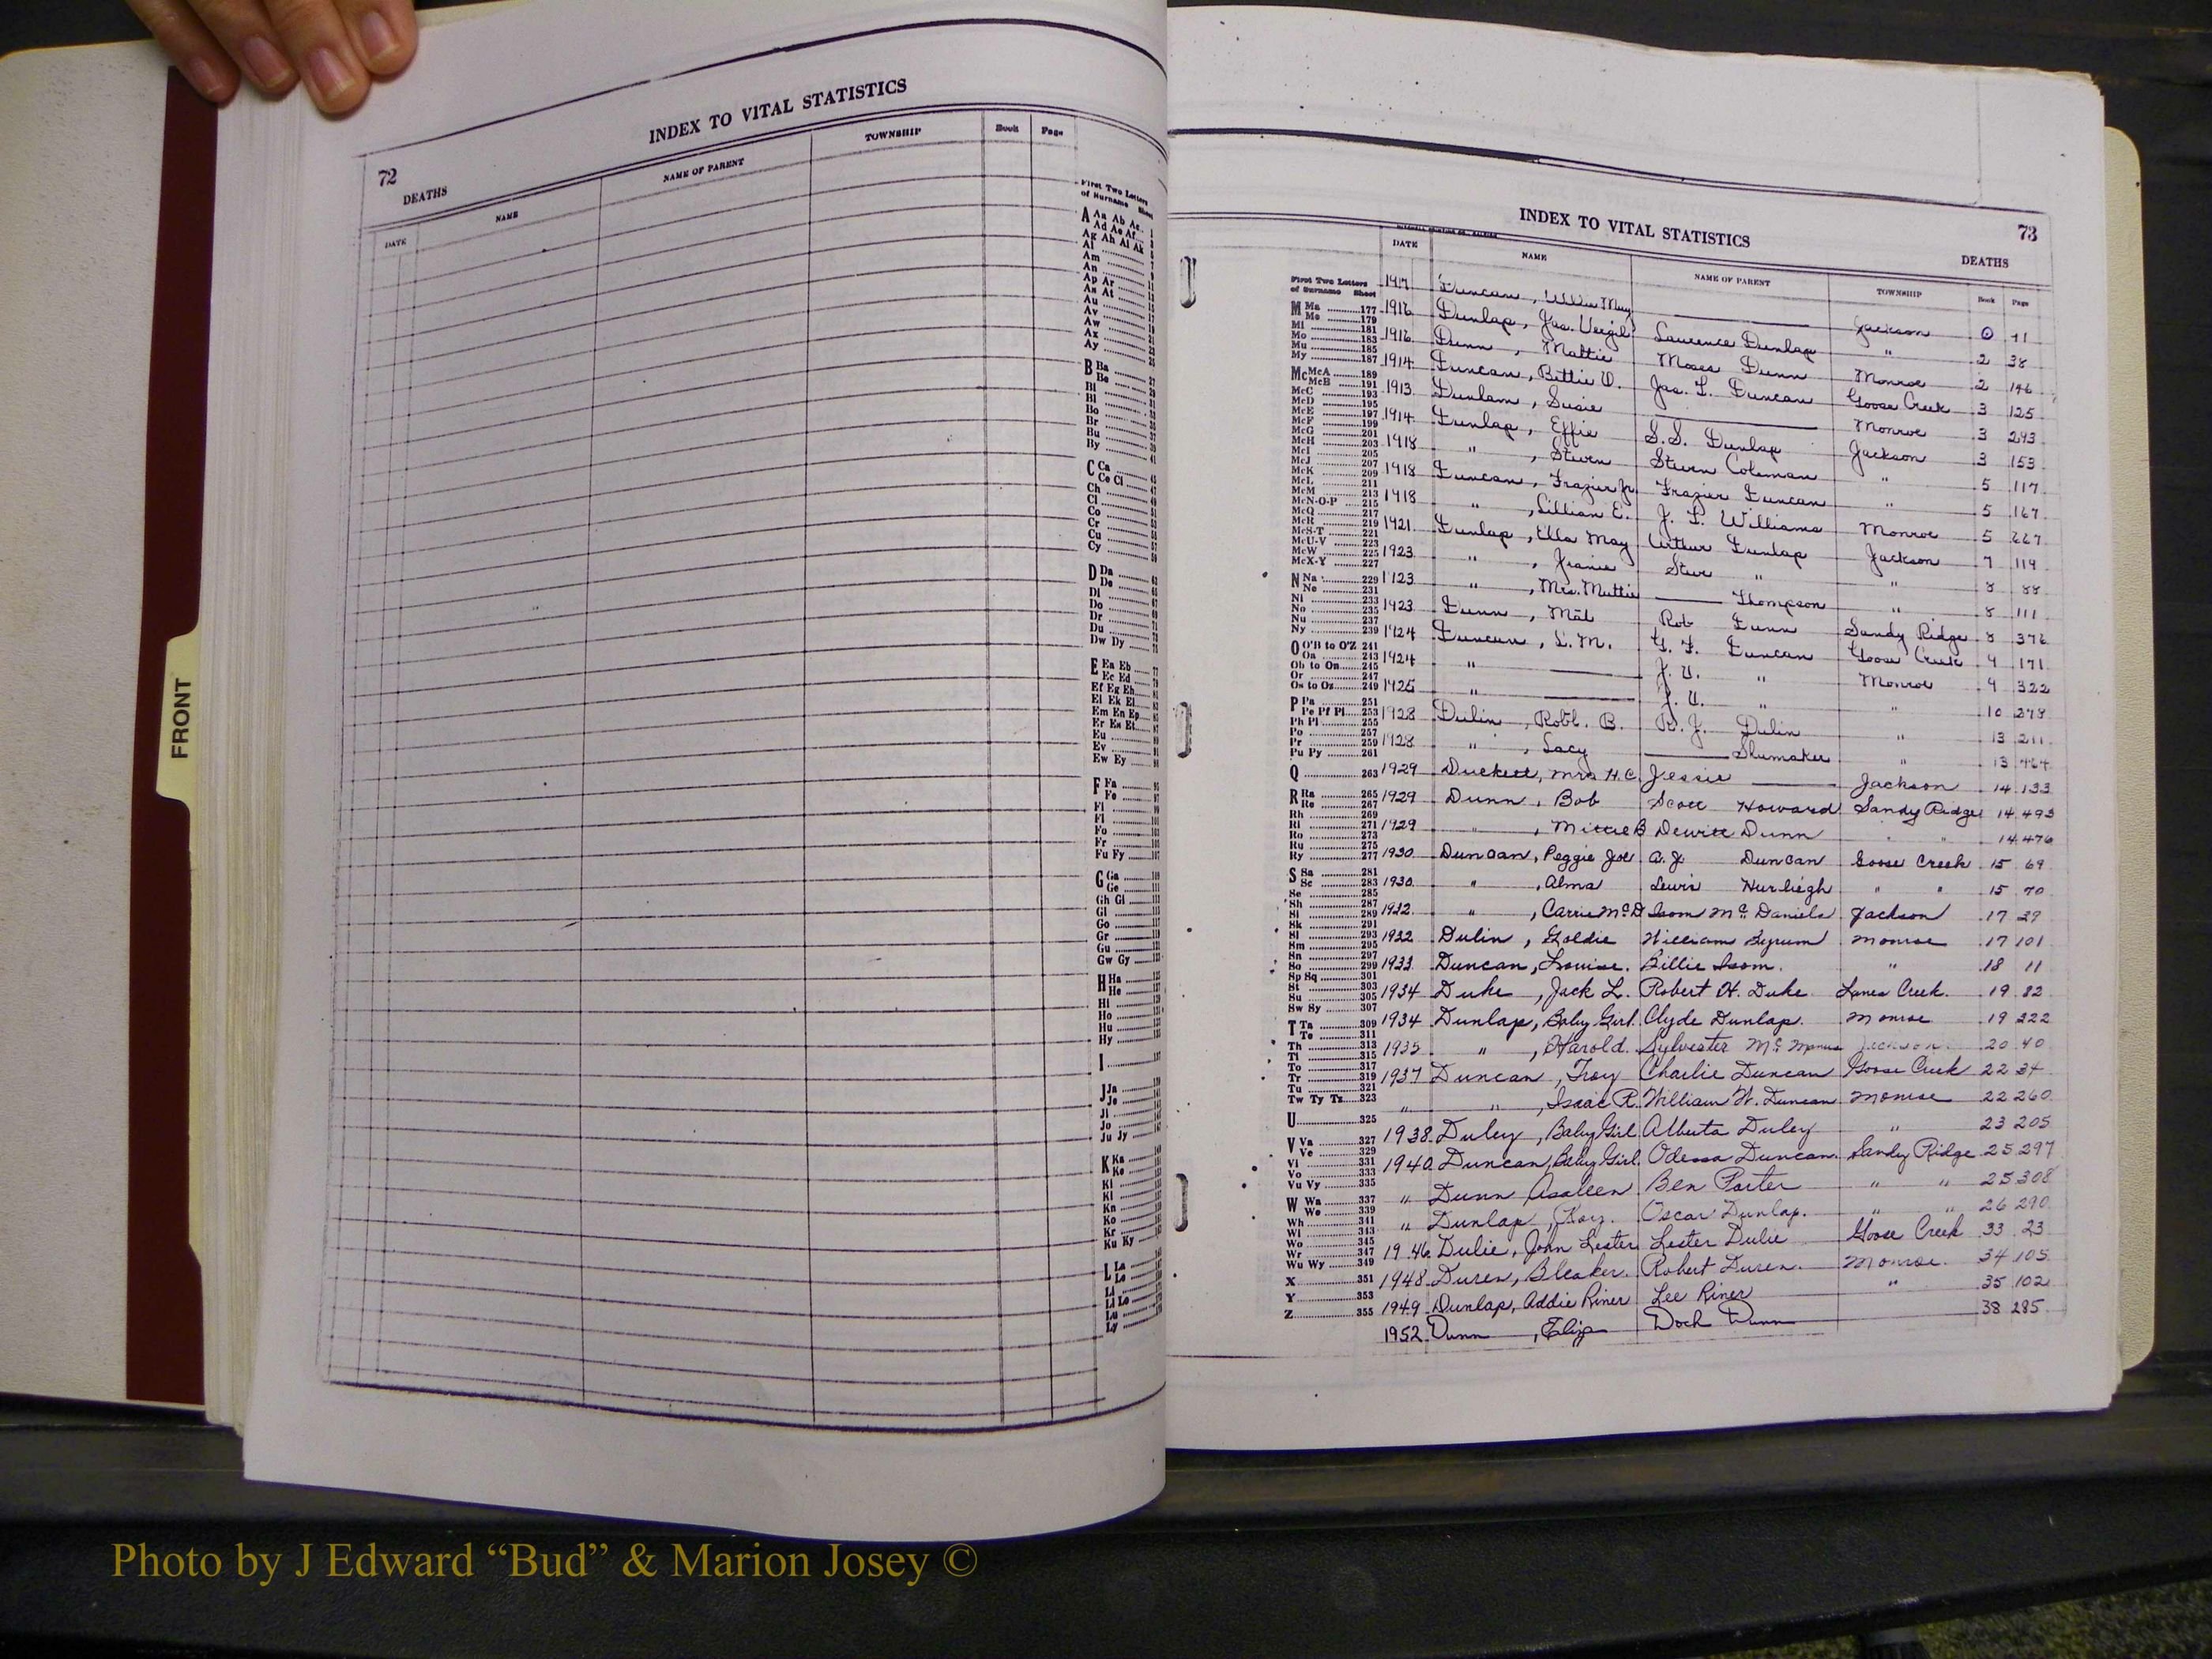 72
INDEX TO VITAL STATISTICS
DEATHS
DATE NAME NAME OF PARENT TOWNSHIP Book Page
First Two Letters
of Surname Sheet
A Aa Ab Ac
Ad Ae Af
Ag Ah Ai Ak
Al
Am
An
Ap Ar
As At
Au
Av
Aw
Ax
Ay
B Ba
Be
Bi
Bl
Bo
Br
Bu
By
C Ca
Ce Ci
Ch
Cl
Co
Cr
Cu
Cy
D Da
De
Di
Do
Dr
Du
Dw Dy
E Ea Eb
Ec Ed
Ef Eg Eh
Ei Ek El
Em En Ep
Er Es Et
Eu
Ev
Ew Ey
F Fa
Fe
Fi
Fl
Fo
Fr
Fu Fy
G Ga
Ge
Gh Gi
Gl
Go
Gr
Gu
Gw Gy
H Ha
He
Hi
Ho
Hu
Hy
I
J Ja
Je
Ji
Jo
Ju Jy
K Ka
Ke
Ki
Kl
Kn
Ko
Kr
Ku Ky
L La
Le
Li
Ll Lo
Lu
Ly
FRONT
INDEX TO VITAL STATISTICS
73
DEATHS
DATE NAME NAME OF PARENT TOWNSHIP Book Page
First Two Letters
of Surname Sheet
M Ma 177
Me 179
Mi 181
Mo 183
Mu 185
My 187
Mc McA 189
McB 191
McC 193
McD 195
McE 197
McF 199
McG 201
McH 203
McI 205
McJ 207
McK 209
McL 211
McM 213
McN-O-P 215
McQ 217
McR 219
McS-T 221
McU-V 223
McW 225
McX-Y 227
N Na 229
Ne 231
Ni 233
No 235
Nu 237
Ny 239
O O'B to O'Z 241
Oa 243
Ob to On 245
Or 247
Os to Oz 249
P Pa 251
Pe Pf Pi 253
Ph Pl 255
Po 257
Pr 259
Pu Py 261
Q 263
R Ra 265
Re 267
Rh 269
Ri 271
Ro 273
Ru 275
Ry 277
S Sa 281
Sc 283
Se 285
Sh 287
Si 289
Sk 291
Sl 293
Sm 295
Sn 297
So 299
Sp Sq 301
St 303
Su 305
Sw Sy 307
T Ta 309
Te 311
Th 313
Ti 315
To 317
Tr 319
Tu 321
Tw Ty Tz 323
U 325
V Va 327
Ve 329
Vi 331
Vo 333
Vu Vy 335
W Wa 337
We 339
Wh 341
Wi 343
Wo 345
Wr 347
Wu Wy 349
X 351
Y 353
Z 355
Duncan, May Jackson
1916 Dunlap, Jas. Vergil Laurence Dunlap " 2 38
1916 Dunn, Mattie Moses Dunn Monroe 2 146
1914 Duncan, Bettie D. Jas. L. Duncan Goose Creek 3 125
1913 Dunlam, Susie Monroe 3 293
1914 Dunlap, Effie S.S. Dunlap Jackson 3 153
1918 " , Steven Steven Coleman " 5 117
1918 Duncan, Frazier Jr. Frazier Duncan " 5 167
1918 " , Lillian E. J. L. Williams Monroe 5
1921 Dunlap, Ella May Arthur Dunlap Jackson 7 119
1923 " , Steve " " 8 88
1923 " , Mrs. Mattie Thompson " 8 111
1923 Dunn, Mal Rob Dunn Sandy Ridge 8 376
1924 Duncan, L. M. G. F. Duncan Goose Creek 9 171
1924 " J. U. " Monroe 9 322
1925 " J. U. " " 10
1928 Dulin, Robt. B. R. J. Dulin " 13 211
1928 " , Lacy Shumaker " 13 464
1929 Duckett, Mrs H.C. Jessie Jackson 14 133
1929 Dunn, Bob Scott Howard Sandy Ridge 14 493
1929 " , Mittie B Dewitt Dunn " " 14 476
1930 Duncan, Peggie Joe A. J. Duncan Goose Creek 15 69
1930 " , Alma Lewis Hurliegh " " 15 70
1932 " , Carrie McD Isom McDaniels Jackson 17 29
1932 Dulin, Goldie William Byrum Monroe 17 101
1933 Duncan, Louise. Billie Isom. " 18 11
1934 Duke, Jack L. Robert H. Duke Lanes Creek. 19 82
1934 Dunlap, Baby Girl. Clyde Dunlap. Monroe 19 222
1935 " , Harold. Sylvester McManus Jackson. 20 40
1937 Duncan, Troy Charlie Duncan Goose Creek 22 34
" " , Isaac R. William W. Duncan Monroe 22 260
1938 Duley, Baby Girl. Alberta Duley " 23 205
1940 Duncan, Baby Girl. Odessa Duncan. Sandy Ridge 25 297
" Dunn Asaleen Ben Porter " " 25 308
" Dunlap, Roy. Oscar Dunlap. " " 26 290
1946 Dulie, John Lester Lester Dulie Goose Creek 33 23
1948 Duren, Bleaker. Robert Duren. Monroe. 34 105
1949 Dunlap, Addie Riner Lee Riner " 35 102
1952 Dunn, Eliza Dock Dunn 38 285
Photo by J Edward “Bud” & Marion Josey ©